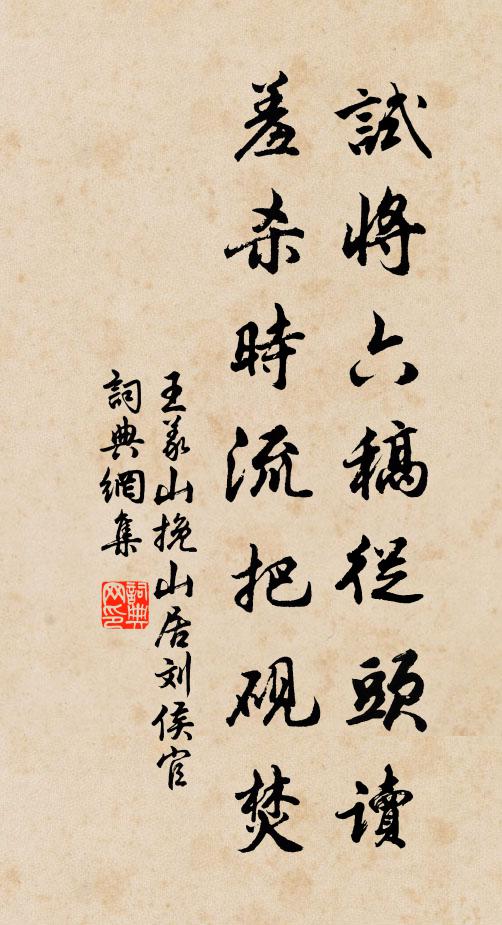 試將六稿從頭讀
羞杀時流把硯焚
王义山挽山居刘侯官
詞典網集
詞典網印